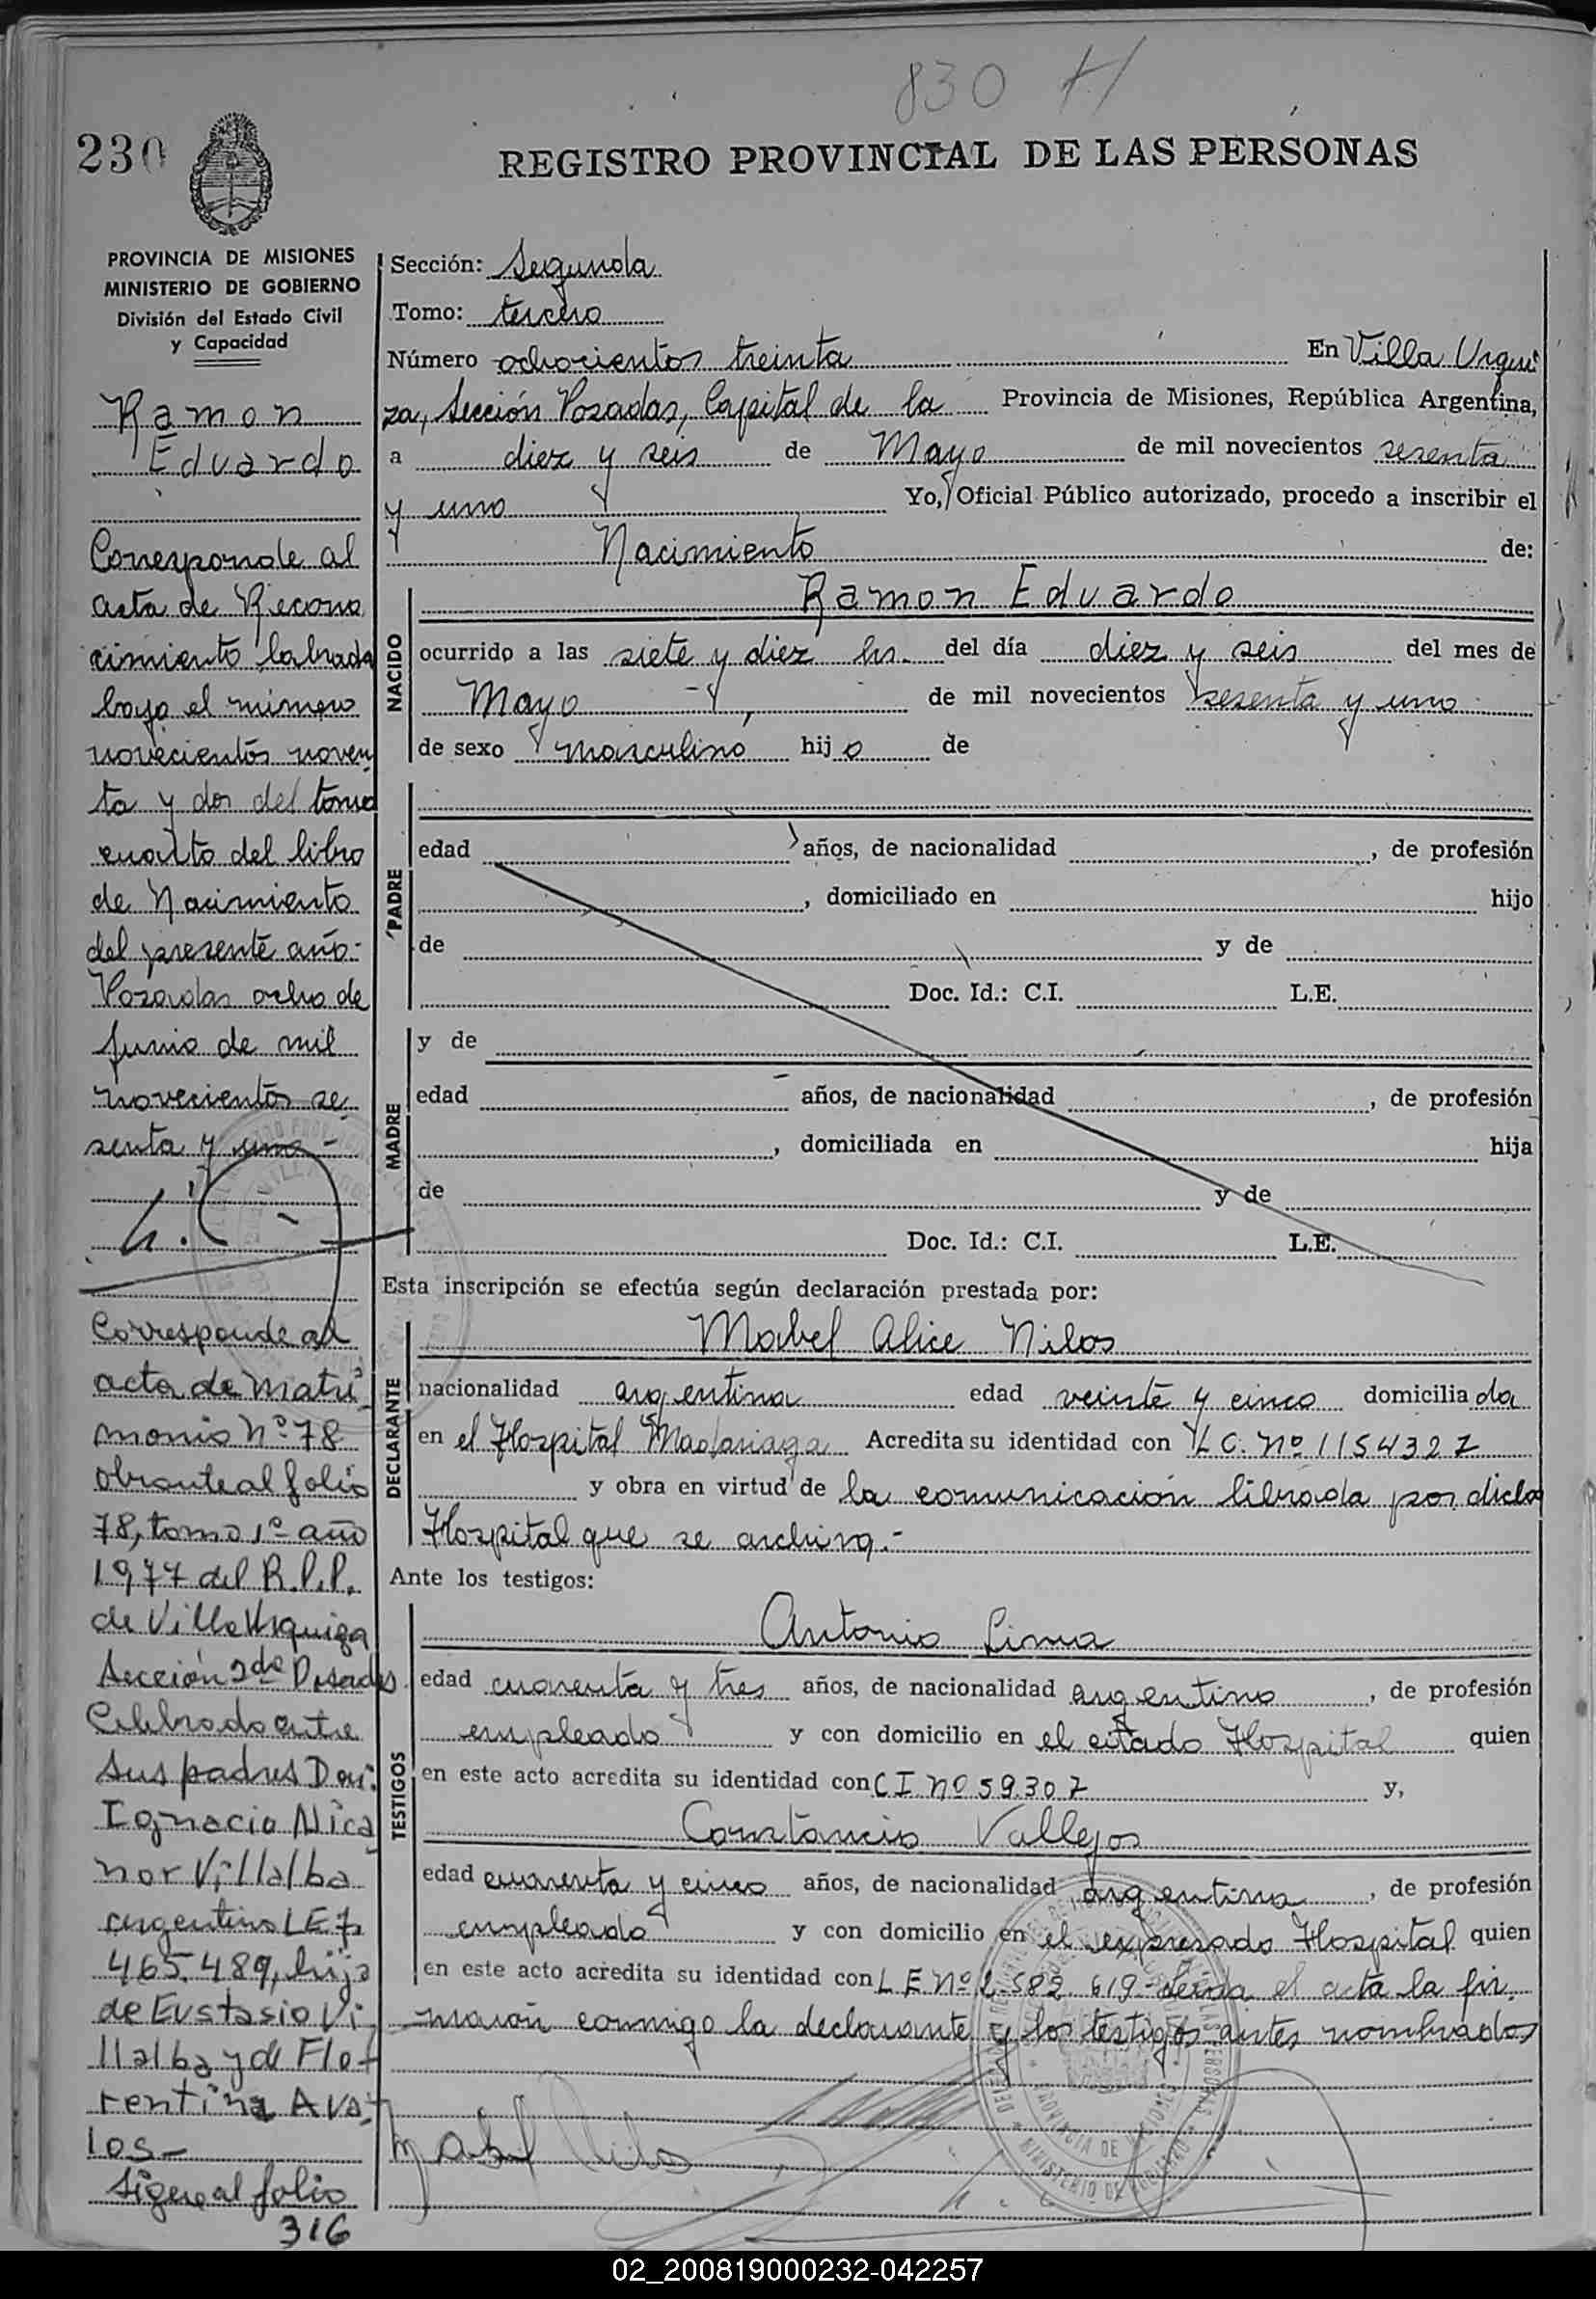 830
230
REGISTRO PROVINCIAL DE LAS PERSONAS
PROVINCIA DE MISIONES
MINISTERIO DE GOBIERNO
División del Estado Civil
y Capacidad
Ramon
Eduardo
Corresponde al
acta de Recono
cimiento labrada
bajo el número
novecientos noven
ta y dos del tomo
cuarto del libro
de Nacimiento
del presente año.-
Posadas ocho de
Junio de mil
novecientos se
senta y uno -
Corresponde al
acta de Matri
monio Nº 78
obrante al folio
78, tomo 1º año
1977 del R.P.P.
de Villa Urquiza
Sección 2da Posadas
Celebrado entre
sus padres Don:
Ignacio Nica
nor Villalba
argentino L E 7.
465.489, hijo
de Eustasio Vi
llalba y de Flo-
rentina Ava-
los-
Sigue al folio
316
Sección: Segunda
Tomo: tercero
Número ochocientos treinta En Villa Urqui
za, Sección Posadas, Capital de la Provincia de Misiones, República Argentina,
a diez y seis de Mayo de mil novecientos sesenta
y uno Yo, Oficial Público autorizado, procedo a inscribir el
Nacimiento de:
NACIDO
Ramon Eduardo
ocurrido a las siete y diez hs. del día diez y seis del mes de
Mayo de mil novecientos sesenta y uno
de sexo masculino hijo de
PADRE
edad años, de nacionalidad , de profesión
, domiciliado en hijo
de y de
Doc. Id.: C.I. L.E.
MADRE
y de
edad años, de nacionalidad , de profesión
, domiciliada en hija
de y de
Doc. Id.: C.I. L.E.
Esta inscripción se efectúa según declaración prestada por:
DECLARANTE
Mabel Alice Nilos
nacionalidad argentina edad veinte y cinco domiciliada
en el Hospital Madariaga Acredita su identidad con L C. Nº 1154327
y obra en virtud de la comunicación librada por dicho
Hospital que se archiva.-
Ante los testigos:
TESTIGOS
Antonio Lima
edad cuarenta y tres años, de nacionalidad argentino , de profesión
empleado y con domicilio en el citado Hospital quien
en este acto acredita su identidad con C I Nº 59.307 y,
Constancio Vallejos
edad cuarenta y cinco años, de nacionalidad argentina , de profesión
empleado y con domicilio en el expresado Hospital quien
en este acto acredita su identidad con L E Nº 582.619 - Leída el acta la fir
maron conmigo la declarante y los testigos antes nombrados
Mabel Nilos
02_200819000232-042257